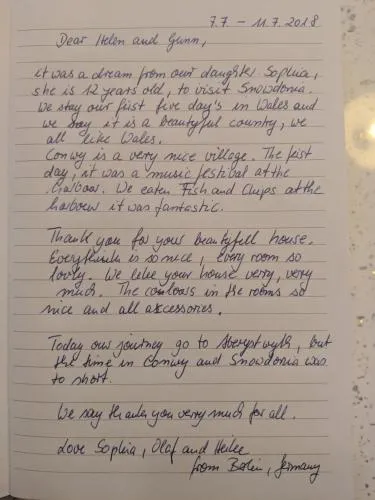 7.7 - 11.7.2018
Dear Helen and Gwnn,
it was a dream from our daughter Sophia,
she is 12 years old, to visit Snowdonia.
We stay our first five day's in Wales and
we say it is a beautyful country, we
all like Wales.
Conwy is a verry nice village. The first
day, it was a music festival at the
harboar. We eaten Fish and Chips at the
harbour it was fantastic.
Thank you for your beautyfull house.
Everythink is so nice, every room so
lovly. We like your house verry, verry
much. The coulours in the rooms so
nice and all accessories.
Today our journey go to Aberystwyth, but
the time in Conwy and Snowdonia was
to short.
We say thank you verry much for all.
Love Sophia, Olaf and Heike
from Berlin, Germany